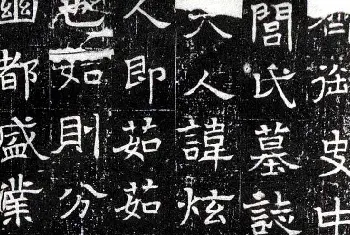 御史中
閭氏墓誌
夫人諱炫
人即茹茹
也如則分
幽都盛業